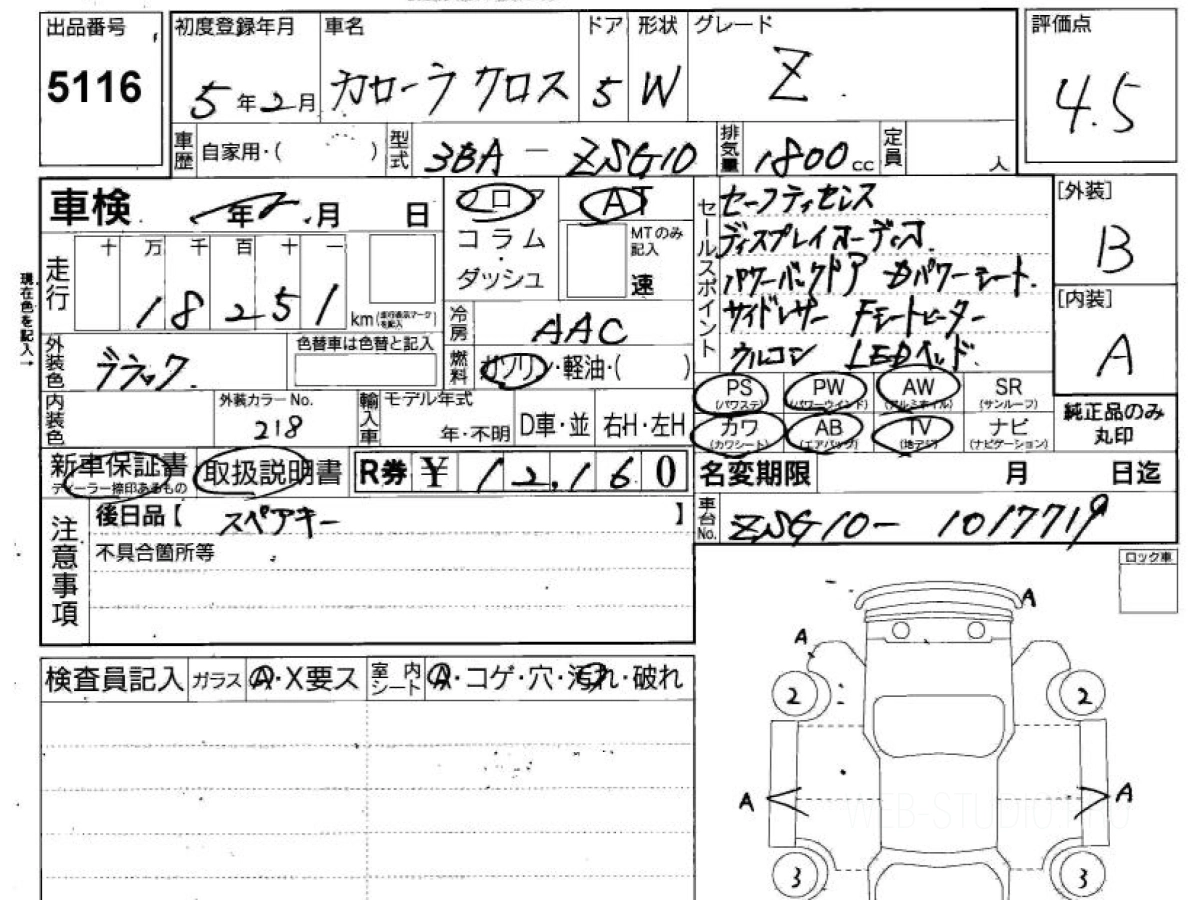 出品番号
5116
初度登録年月 車名 ドア 形状 グレード
5年2月 カローラクロス 5 W Z.
評価点
4.5
車歴 自家用・( ) 型式 3BA - ZSG10 排気量 1800cc 定員 人
車検 年2.月 日
フロア AT
コラム
・
ダッシュ
MTのみ
記入
速
セールスポイント
セーフティセンス
ディスプレイオーディオ.
パワーバックドア Dパワーシート.
サイドレザー Fシートヒーター
ウルコン LEDヘッド.
[外装]
B
[内装]
A
現在色を記入→
走行
十 万 千 百 十 一
1 8 2 5 1 km(走行表示マークを記入)
冷房 AAC
外装色 ブラック. 色替車は色替と記入
燃料 ガソリン・軽油・( )
内装色 外装カラーNo.
218
輸入車 モデル年式
年・不明 D車・並 右H・左H
PS (パワステ) PW (パワーウインド) AW (アルミホイル) SR (サンルーフ)
カワ (カワシート) AB (エアバッグ) TV (地デジ) ナビ (ナビゲーション)
純正品のみ
丸印
新車保証書
ディーラー捺印あるもの
取扱説明書 R券 ¥ 12,160
名変期限 月 日迄
注意事項
後日品【 スペアキー 】
不具合箇所等
車台No. ZSG10- 1017719
ロック車
検査員記入 ガラス A・X要ス 室内シート A・コゲ・穴・汚れ・破れ
A
A
2 2
A A
3 3
WEB-STUDIO.PRO